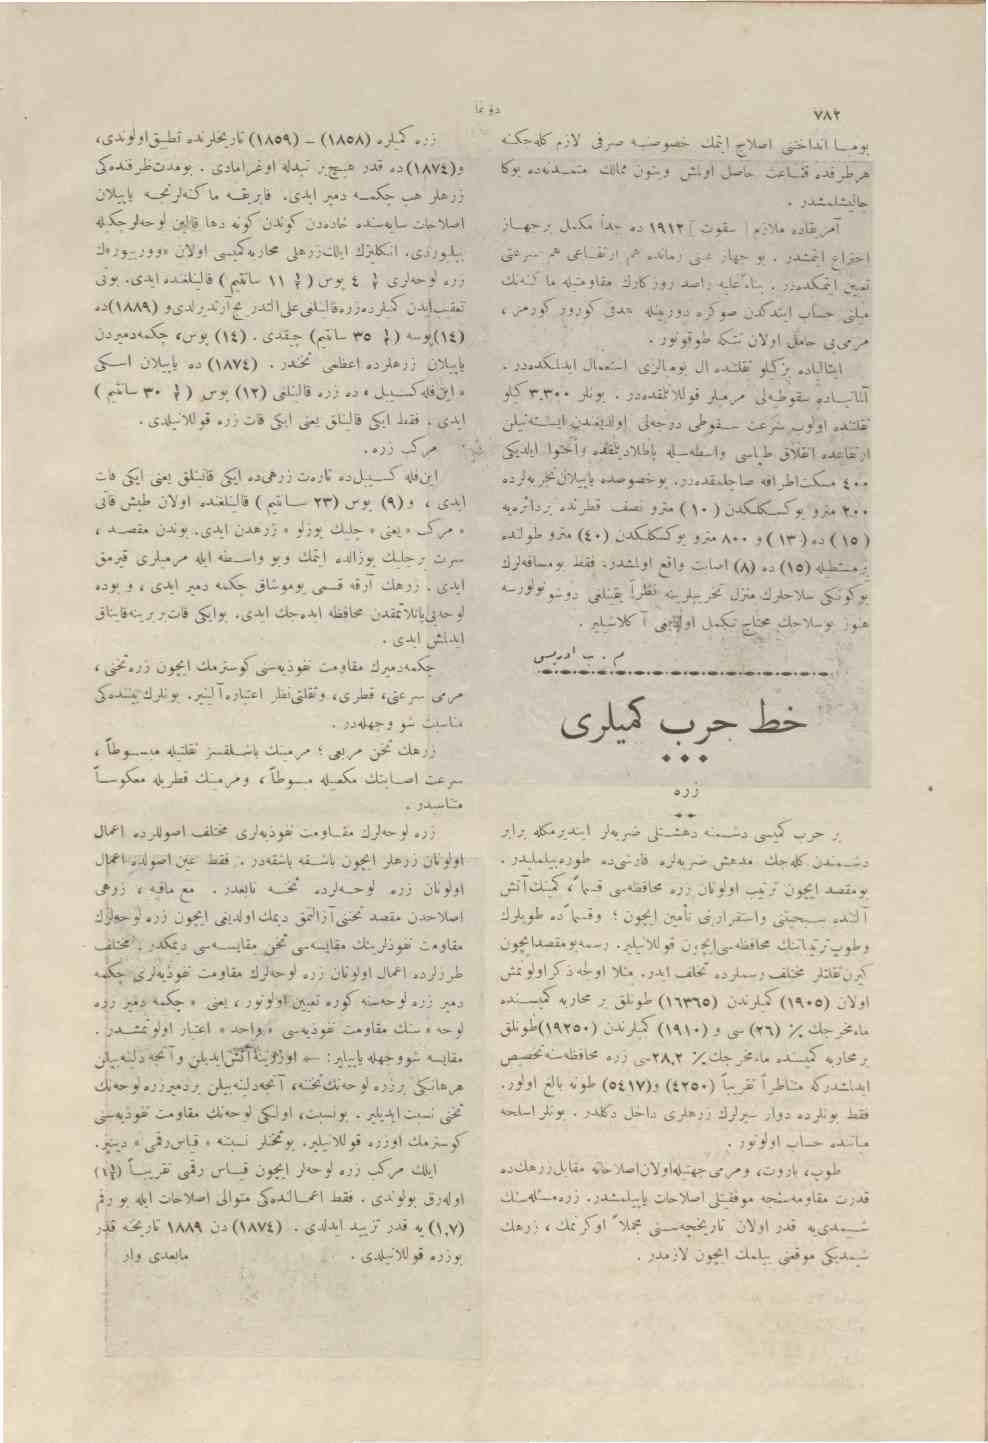 ٧٨٢
دونما
بومبا انداختنی اصلاح ایتمك خصوصنه صرفی لازم كله‌جكنه
هر طرفده قناعت حاصل اولمش وبتون ممالك متمدنه‌ده بوكا
چالیشلمشدر .
آمریقاده ملازم [ سقوت ] ١٩١٢ ده جداً مكمل برجهاز
اختراع ایتمشدر . بو جهاز عینی زمانده هم ارتفاعی هم سرعتی
تعیین ایتمكده‌در . بناءً علیه راصد روزكارك مقاومتیله ماكنه‌نك
میلنی حساب ایتدكدن صوكره دوربینله هدفی كورور كورمز ،
مرمی‌یی حامل اولان تتكه طوقونور .
ایتالیاده بر كیلو ثقلتنده ال بومبالری استعمال ایدلمكده‌در .
آلمانیاده سقوطیه‌لی مرمیلر قوللانلمقده‌در . بونلر ٣,٣٠٠ كیلو
ثقلتنده اولوب سرعت سقوطی درجه‌لی اولدیغندن ایسته‌نیلن
ارتفاعده انفلاق طپاسی واسطه‌سله پاطلادیلمقده واحتوا ایلدیكی
٤٠٠ مسكت اطرافه صاچلمقده‌در. بوخصوصده یاپیلان تجربه‌لرده
٢٠٠ مترو یوكسكلكدن (١٠) مترو نصف قطرنده بردائره‌یه
(١٥) ده (١٣) و ٨٠٠ مترو یوكسكلكدن (٤٠) مترو طولنده
بر مستطیله (١٥) ده (٨) اصابت واقع اولمشدر. فقط بومسافه‌لرك
بوكونكی سلاحلرك منزل تخریبلرینه نظراً یقینلغی دوشونولورسه
هنوز بوسلاحك محتاج تكمل اولدیغی آكلاشیلیر .
م . ب ادریس
خط حرب كمیلری
زره
بر حرب كمیسی دشمنه دهشتلی ضربه‌لر ایندیرمكله برابر
دشمندن كله‌جك مدهش ضربه‌لره قارشی‌ده طوره‌بیلملیدر .
بومقصد ایچون ترتیب اولونان زره محافظه‌سی قسماً ، كمینك آتش
آلتنده سبحیتنی واستقرارینی تأمین ایچون ؛ وقسماً ده طوپلرك
وطوپ ترتیباتنك محافظه‌سی ایچون قوللانیلیر. رسمه بومقصد ایچون
كیرن ثقلتلر مختلف رسملرده تخلف ایدر. مثلا اولجه ذكر اولونمش
اولان (١٩٠٥) كمیلرندن (١٦٣٦٥) طونلق بر محاربه كمیسنده
ماءمخرجك ٪ (٢٦) سی و (١٩١٠) كمیلرندن (١٩٢٥٠) طونلق
بر محاربه كمیسنده ماءمخرجك ٪ ٢٨,٢ سی زره محافظه‌سنه تخصیص
ایدلمشدركه متناظراً تقریباً (٤٢٥٠) و(٥٤١٧) طونه بالغ اولور.
فقط بونلرده دوار سپرلرك زرهلری داخل دكلدر . بونلر اسلحه
میاننده حساب اولونور .
طوپ، باروت، ومرمی جهتیله اولان اصلاحاته مقابل زرهك‌ده
قدرت مقاومه‌سنجه موفقیتلی اصلاحات یاپیلمشدر. زره مسئله‌سنك
شیمدی‌یه قدر اولان تاریخچه‌سنی مجملاً اوكرنمك ، زرهك
شیمدیكی موقعنی بیلمك ایچون لازمدر .
زره كمیلره (١٨٥٨) – (١٨٥٩) تاریخلرنده تطبیق اولوندی،
و(١٨٧٤) ده قدر هیچ بر تبدله اوغرامادی . بومدت ظرفنده‌كی
زرهلر هپ چكمه دمیر ایدی. فابریقه ماكنه‌لرنجه یاپیلان
اصلاحات سایه‌سنده خاده‌دن كوندن كونه دها قالین لوحه‌لر چكیله
بیلیوردی. انكلیزك ایلك زرهلی محاربه كمیسی اولان «ووریور»ك
زره لوحه‌لری ½ ٤ پوس ( ½ ١١ سانتیم ) قالینلغنده ایدی. بونی
تعقیب ایدن كمیلرده زره قالینلغی علی التدریج آرتدیرلدی و (١٨٨٩) ده
(١٤) پوسه ( ½ ٣٥ سانتیم) چیقدی . (١٤) پوس، چكمه دمیردن
یاپیلان زرهلرده اعظمی ثخندر . (١٨٧٤) ده یاپیلان اسكی
« این فله كسیبل » ده زره قالینلغی (١٢) پوس ( ½ ٣٠ سانتیم )
ایدی . فقط ایكی قالینلق یعنی ایكی قات زره قوللانیلدی .
مركب زره .
این فله كسیبل‌ده تاره‌ت زرهی‌ده ایكی قالینلق یعنی ایكی قات
ایدی ، و (٩) پوس (٢٣ سانتیم ) قالینلغنده اولان طیش قاتی
« مركب » یعنی « چلیك یوزلو » زرهدن ایدی. بوندن مقصد ،
سرت برچلیك یوزالده ایتمك وبو واسطه ایله مرمیلری قیرمق
ایدی . زرهك آرقه قسمی یوموشاق چكمه دمیر ایدی ، و بوده
لوحه‌یی پاتلاتمقدن محافظه ایده‌جك ایدی. بوایكی قات بربرینه قایناق
ایدلمش ایدی .
چكمه دمیرك مقاومت نفوذیه‌سنی كوسترمك ایچون زره ثخنی ،
مرمی سرعتی، قطری، وثقلتی نظر اعتباره آلینیر. بونلرك بیننده‌كی
مناسبت شو وجهله‌در .
زرهك ثخن مربعی ؛ مرمینك باشلقسز ثقلتیله مبسوطاً ،
سرعت اصابتك مكعبیله مبسوطاً ، ومرمینك قطریله معكوساً
متناسبدر .
زره لوحه‌لرك مقاومت نفوذیه‌لری مختلف اصوللرده اعمال
اولونان زرهلر ایچون باشقه باشقه‌در . فقط عین اصولده اعمال
اولونان زره لوحه‌لرده ثخنه تابعدر . مع مافیه ، زرهی
اصلاحدن مقصد ثخنی آزالتمق دیمك اولدیغی ایچون زره لوحه‌لرك
مقاومت نفوذلرینك مقایسه‌سی ثخن مقایسه‌سی دیمكدر . مختلف
طرزلرده اعمال اولونان زره لوحه‌لرك مقاومت نفوذیه‌لری چكمه
دمیر زره لوحه‌سنه كوره تعیین اولونور ، یعنی « چكمه دمیر زره
لوحه » سنك مقاومت نفوذیه‌سی « واحد » اعتبار اولونمشدر .
مقایسه شو وجهله یاپیلیر: — اوزرینه آتش ایدیلن و آنجه دلینه‌بیلن
هرهانكی برزره لوحه‌نك ثخننه، آنجه دلینه‌بیلن بردمیر زره لوحه‌نك
ثخنی نسبت ایدیلیر. بونسبت، اولكی لوحه‌نك مقاومت نفوذیه‌سنی
كوسترمك اوزره قوللانیلیر. بوثخنلر نسبتنه « قیاس رقمی » دینیر.
ایلك مركب زره لوحه‌لر ایچون قیاس رقمی تقریباً (¼١)
اوله‌رق بولوندی . فقط اعمالده‌كی متوالی اصلاحات ایله بو رقم
(١,٧) یه قدر تزیید ایدلدی . (١٨٧٤) دن ١٨٨٩ تاریخنه قدر
بوزره قوللانیلدی . مابعدی وار